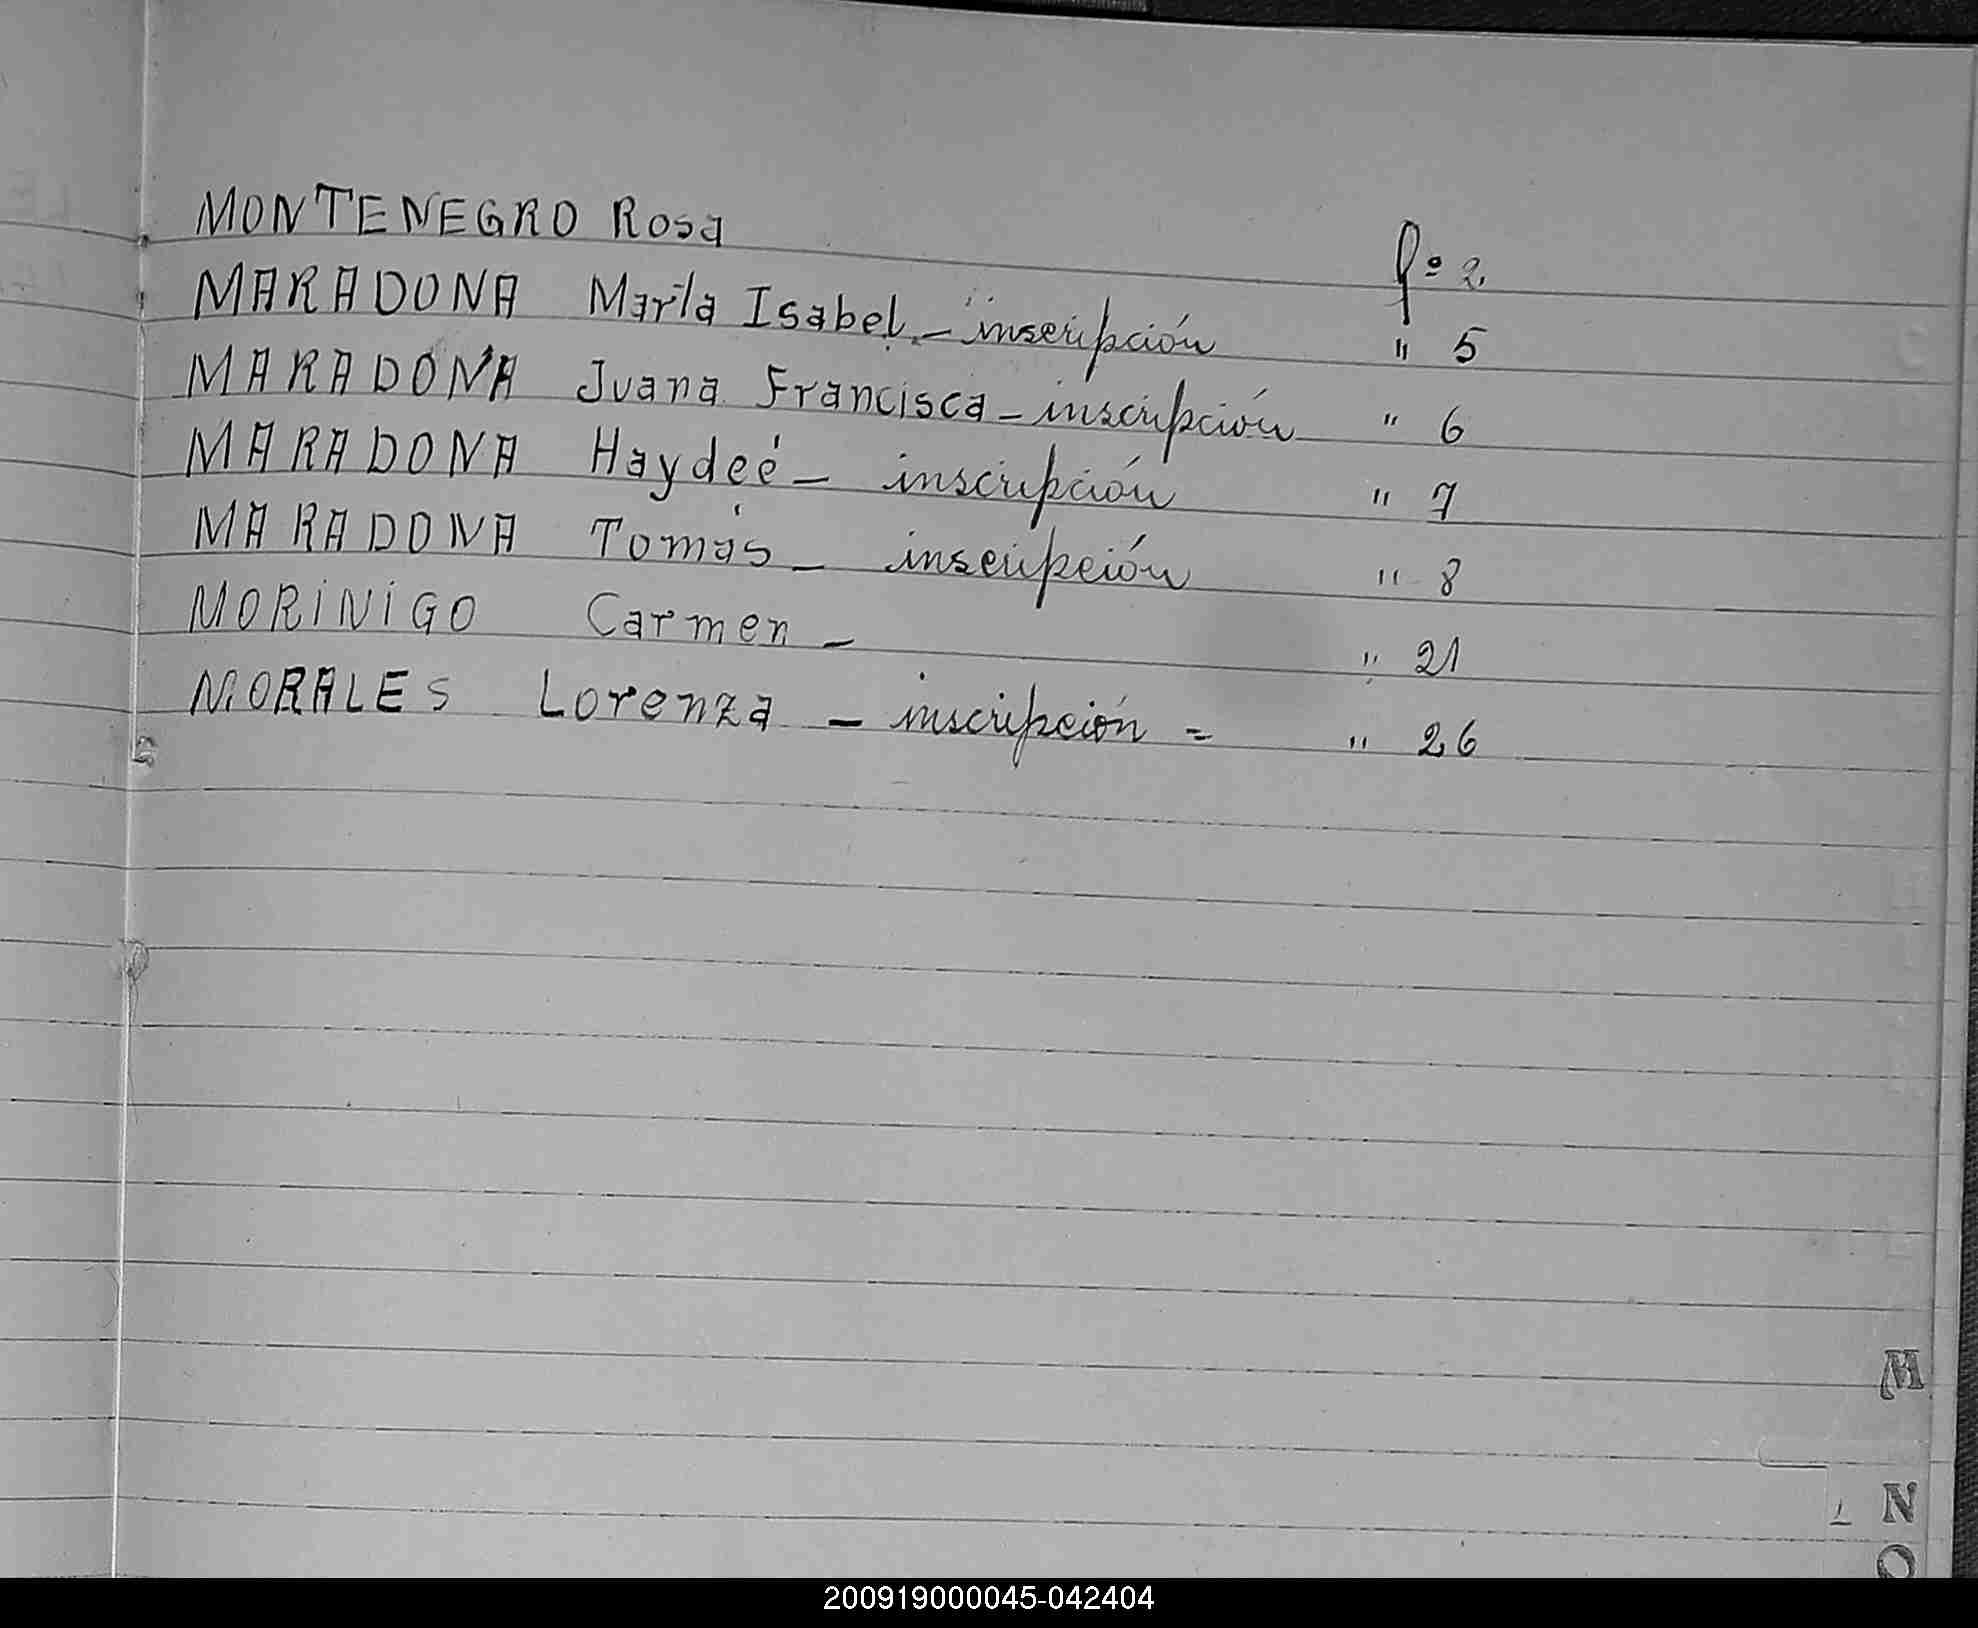 MONTENEGRO Rosa fº 2.
MARADONA María Isabel - inscripción " 5
MARADONA Juana Francisca - inscripción " 6
MARADONA Haydeé - inscripción " 7
MARADONA Tomás - inscripción " 8
MORINIGO Carmen - " 21
MORALES Lorenza - inscripción = " 26
M
N
O
200919000045-042404